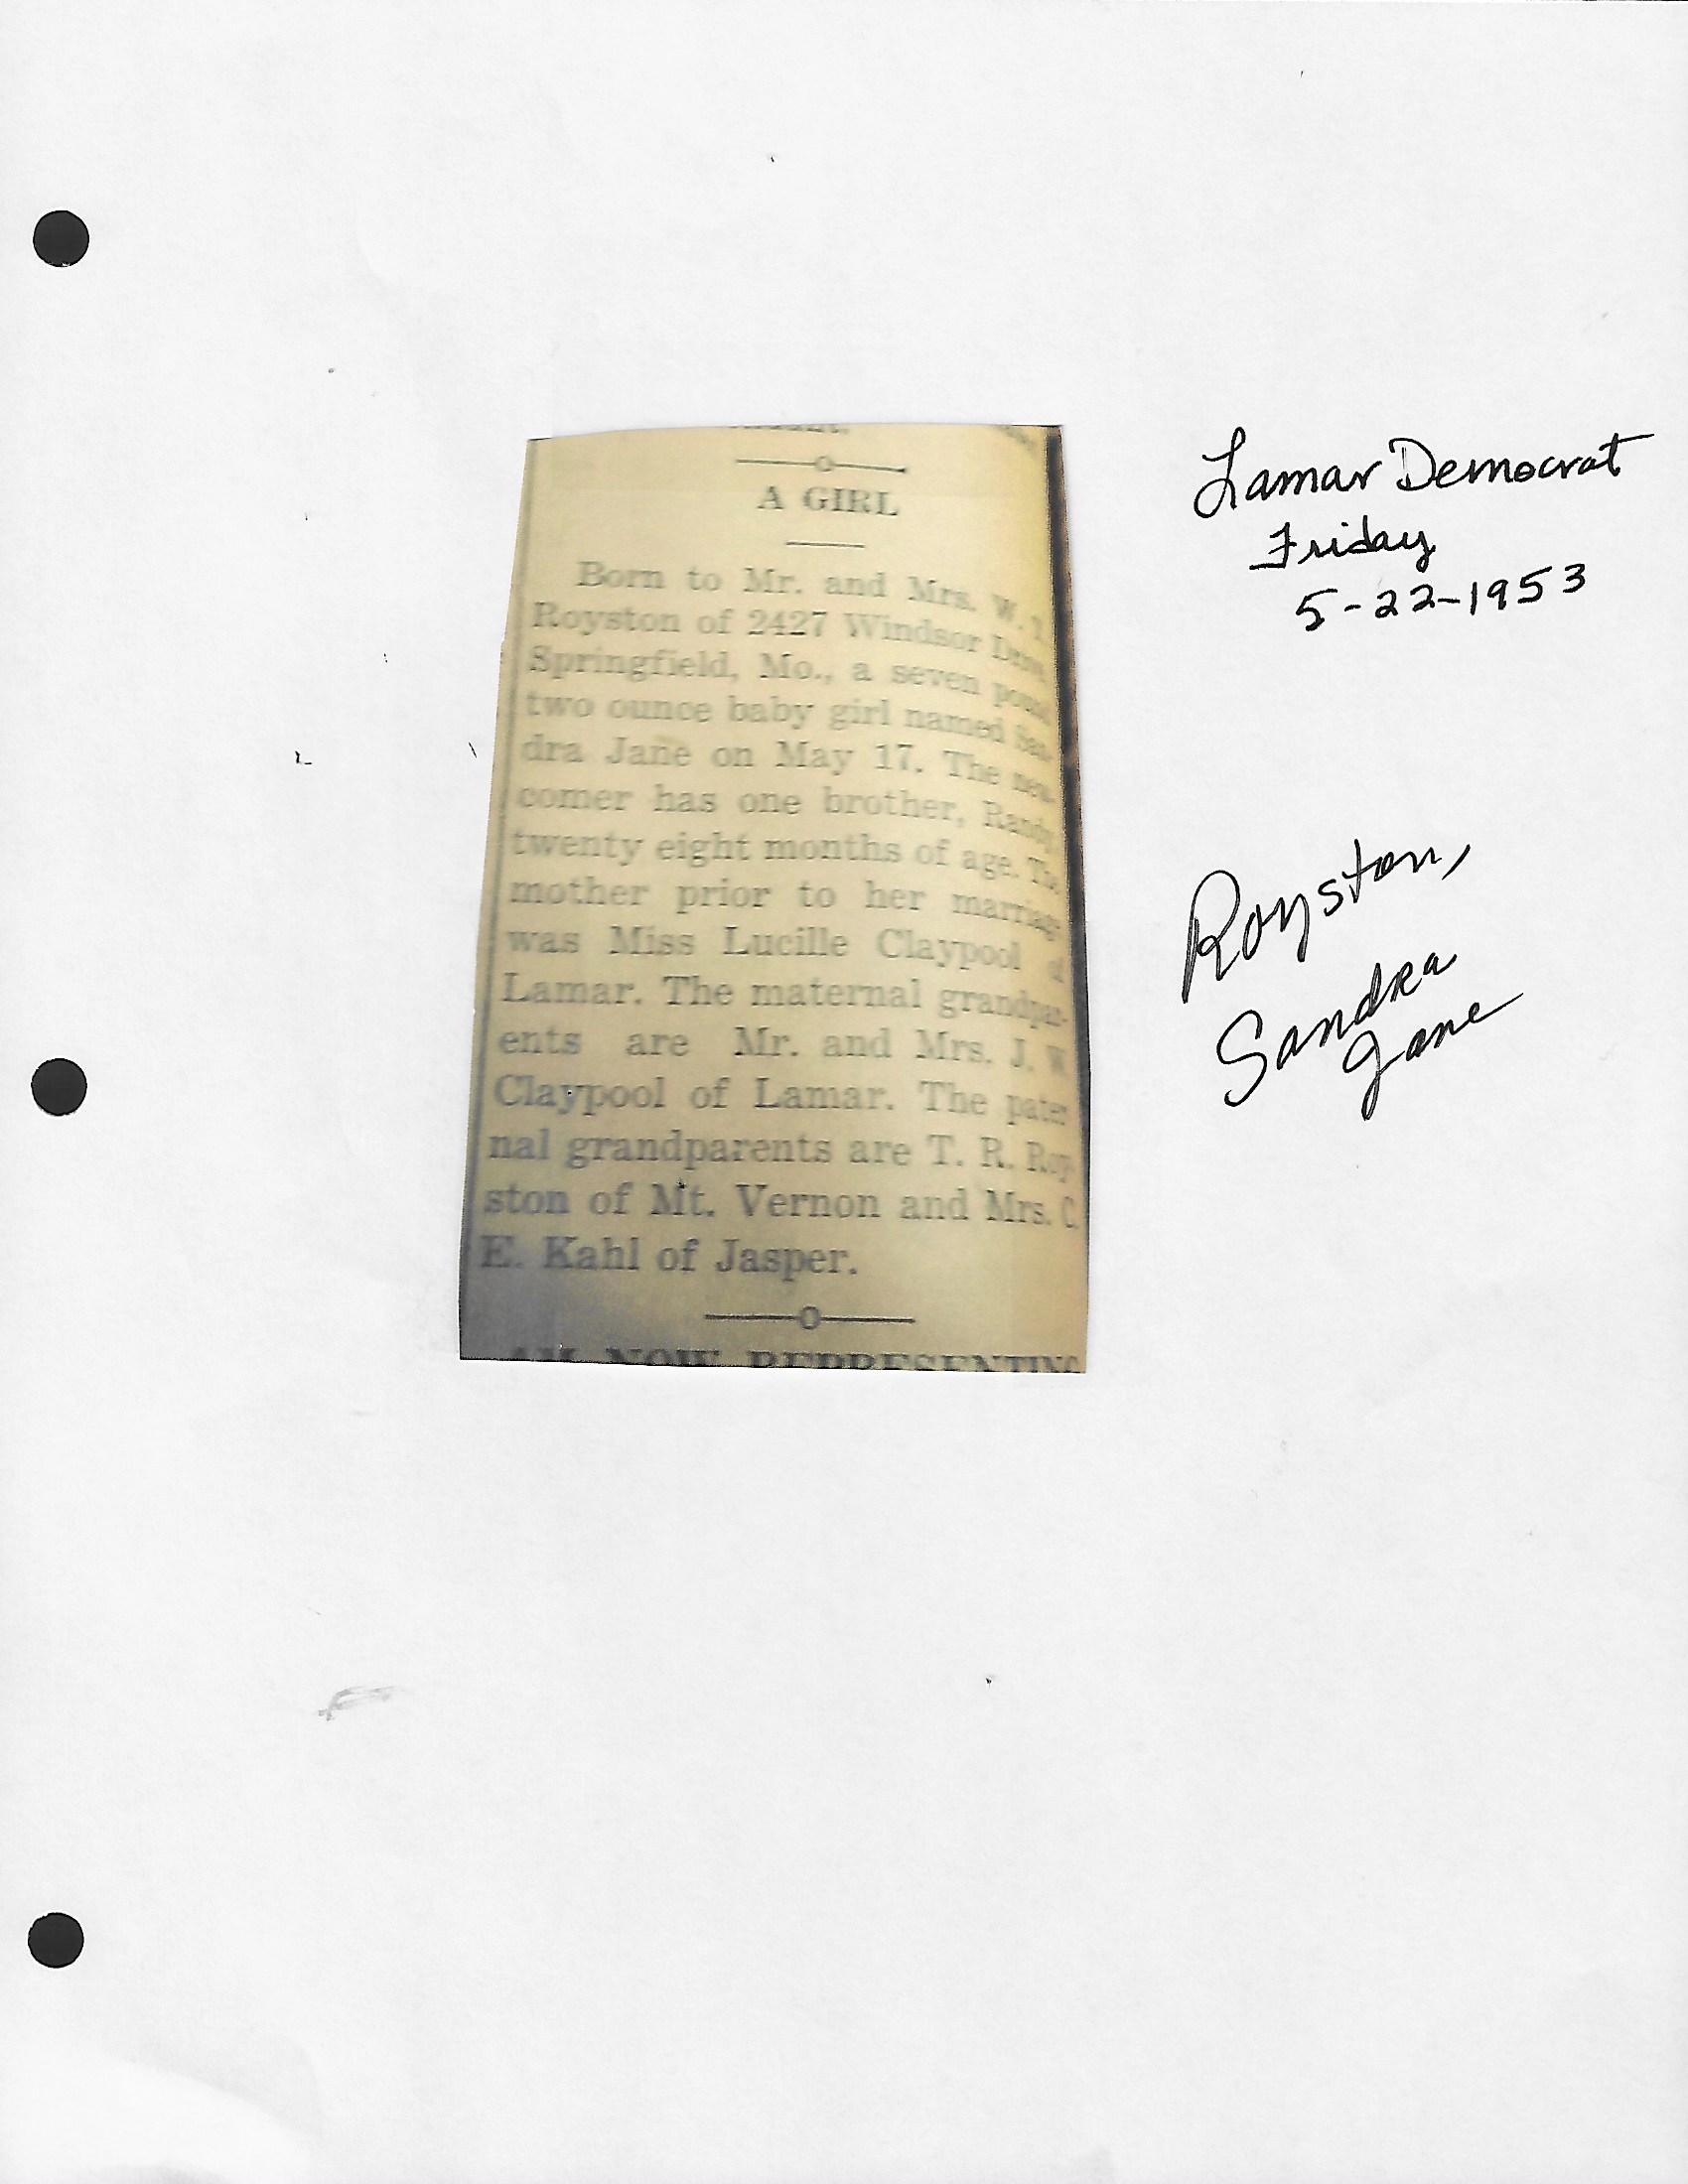 A GIRL
Born to Mr. and Mrs. W.
Royston of 2427 Windsor
Springfield, Mo., a seven pound
two ounce baby girl named San-
dra Jane on May 17. The new-
comer has one brother, Randy
twenty eight months of age. The
mother prior to her marriage
was Miss Lucille Claypool of
Lamar. The maternal grandpar-
ents are Mr. and Mrs. J. W
Claypool of Lamar. The pater
nal grandparents are T. R. Roy
ston of Mt. Vernon and Mrs. C.
E. Kahl of Jasper.
AM NOW REPRESENTING
Lamar Democrat
Friday
5-22-1953
Royston,
Sandra
Jane